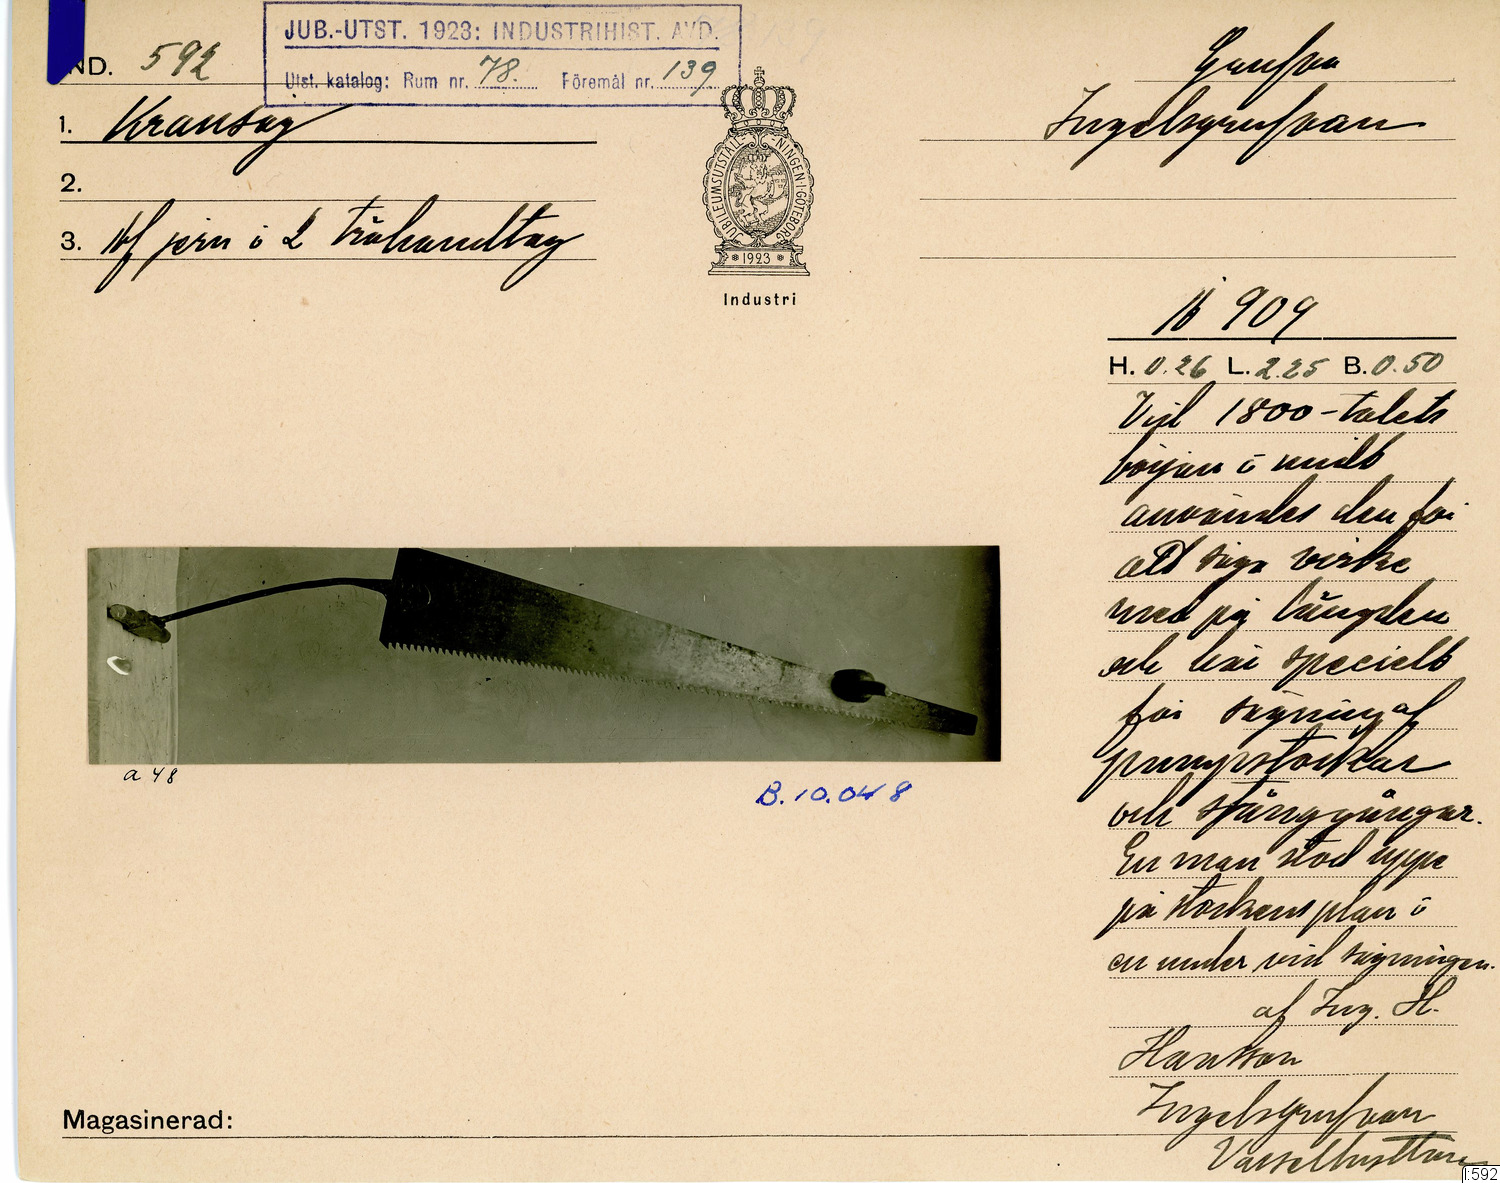 JUB.-UTST. 1923: INDUSTRIHIST. AVD.
Utst. katalog: Rum nr. 78. Föremål nr. 139
ND. 592
1. Kransåg
2.
3. Af jern o 2 trähandtag
JUBILEUMSUTSTÄLL-NINGEN·I·GÖTEBORG
1923
Industri
Grufva
Ingelsgrufvan
N 909
H. 0.26 L. 2.25 B. 0.50
Vid 1800-talets
början o midt
användes den för
att såga virke
med på längden
och var specielt
för sågning af
pumpstockar
och stånggångar.
En man stod uppe
på stockens plan o
en under vid sågningen.
af Ing. H.
Hansson
Ingelsgrufvan
a 48
B. 10.048
Magasinerad:
I:592